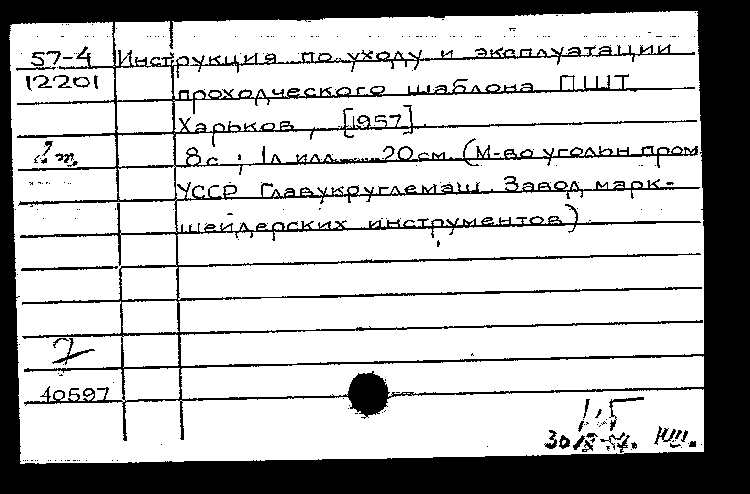 57-4 Инструкция по уходу и эксплуатации
12201 проходческого шаблона ПШТ.
Харьков, [1957].
8с.; 1л илл. 20см. (М-во угольн пром
УССР Главукруглемаш. Завод марк-
шейдерских инструментов)
7
40597
30